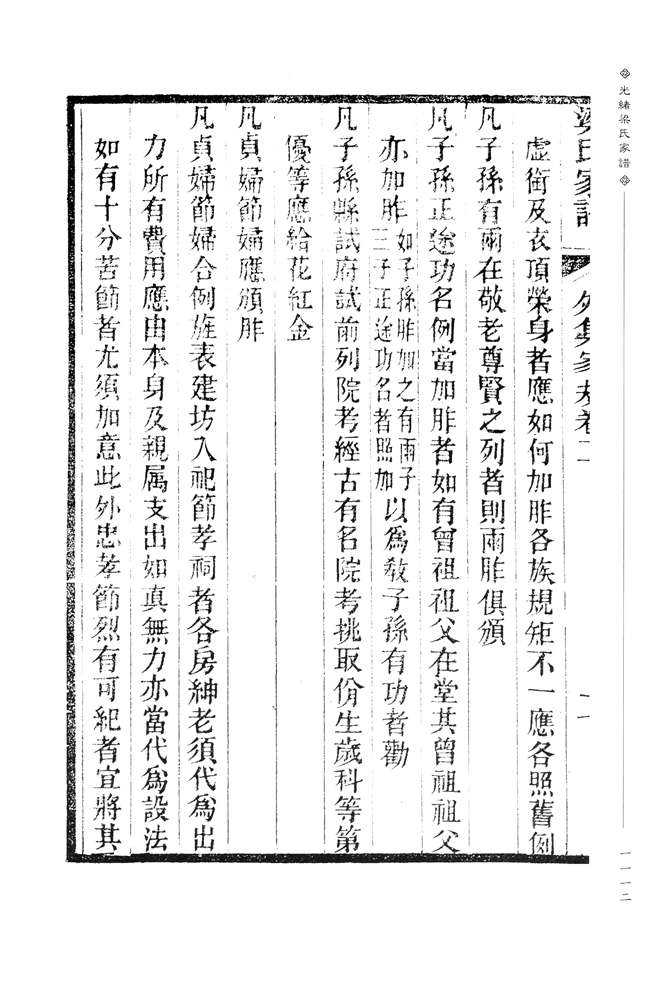 光緒梁氏家譜
一一一二
梁氏家譜 外集家規卷二 二
虛銜及衣頂榮身者應如何加胙各族規矩不一應各照舊例
凡子孫有兩在敬老尊賢之列者則兩胙俱頒
凡子孫正途功名例當加胙者如有曾祖祖父在堂其曾祖祖父
亦加胙如子孫胙加之有兩子三子正途功名者照加以爲敎子孫有功者勸
凡子孫縣試府試前列院考經古有名院考挑取佾生歲科等第
優等應給花紅金
凡貞婦節婦應頒胙
凡貞婦節婦合例旌表建坊入祀節孝祠者各房紳老須代爲出
力所有費用應由本身及親属支出如真無力亦當代爲設法
如有十分苦節者尤須加意此外忠孝節烈有可紀者宜將其